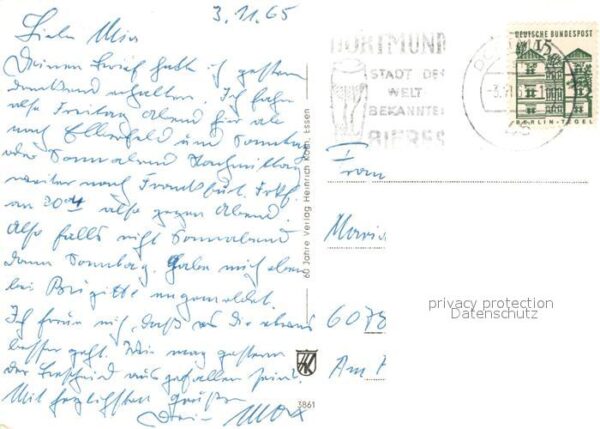 3.11.65
Liebe Mia
Deinen Brief habe ich gestern
dankend erhalten. Ich fahre
also Freitag Abend hier ab
nach Ellerfeld und Sonntag
oder Sonnabend Nachmittag
weiter nach Frankfurt. Frkf.
an 20 also gegen Abend.
Also falls nicht Sonnabend
dann Sonntag. Habe mich eben
bei Brigitte angemeldet.
Ich freue mich, daß es Dir etwas
besser geht. Wie mag gestern
der Bescheid ausgefallen sein?
Mit herzlichsten Grüßen
Max
60 Jahre Verlag Heinrich Koch, Essen
3861
DORTMUND
STADT DER
WELT-
BEKANNTEN
BIERES
-3.11
DEUTSCHE BUNDESPOST
15
BERLIN-TEGEL
Frau
Maria
6078
Am
privacy protection
Datenschutz